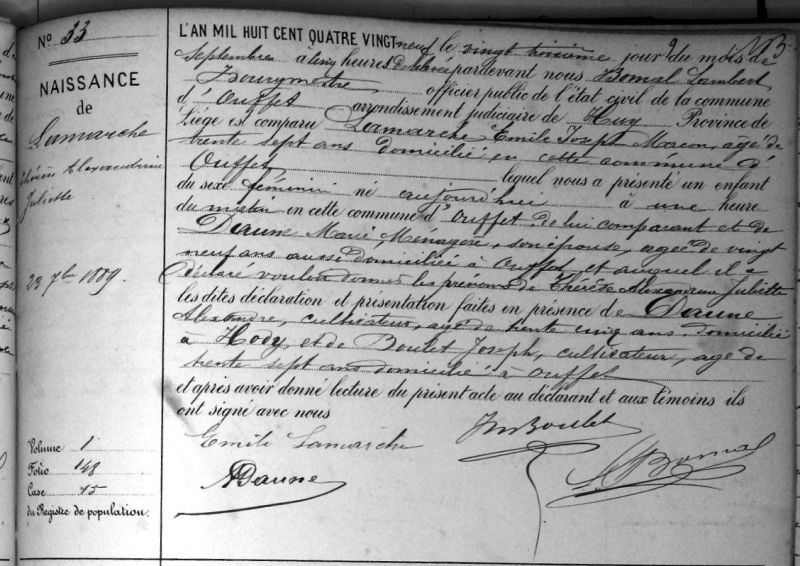 N° 33
NAISSANCE
de
Lamarche
Thérèse Alexandrine
Juliette
23 7bre 1889.
Volume 1
Folio 148
Case 45
du Registre de population.
L'AN MIL HUIT CENT QUATRE VINGT neuf le vingt troisième jour du mois de
Septembre à cinq heures de relevée pardevant nous Bomal Lambert
Bourgmestre officier public de l'état civil de la commune
d'Ouffet arrondissement judiciaire de Huy Province de
Liége est comparu Lamarche Emile Joseph Macon, agé de
trente sept ans domicilié en cette commune d'
Ouffet lequel nous a présenté un enfant
du sexe féminin né aujourd'hui à une heure
du matin en cette commune d'Ouffet de lui comparant et de
Daune Marie, Ménagère, son épouse, agée de vingt
neuf ans aussi domiciliée à Ouffet et auquel il a
déclaré vouloir donner les prénoms de Thérèse Alexandrine Juliette
les dites déclaration et présentation faites en présence de Daune
Alexandre, cultivateur, agé de trente cinq ans domicilié
à Hody, et de Boulet Joseph, cultivateur, agé de
trente sept ans domicilié à Ouffet
et après avoir donné lecture du présent acte au déclarant et aux témoins ils
ont signé avec nous
Emile Lamarche
Boulet
ADaune
LBomal